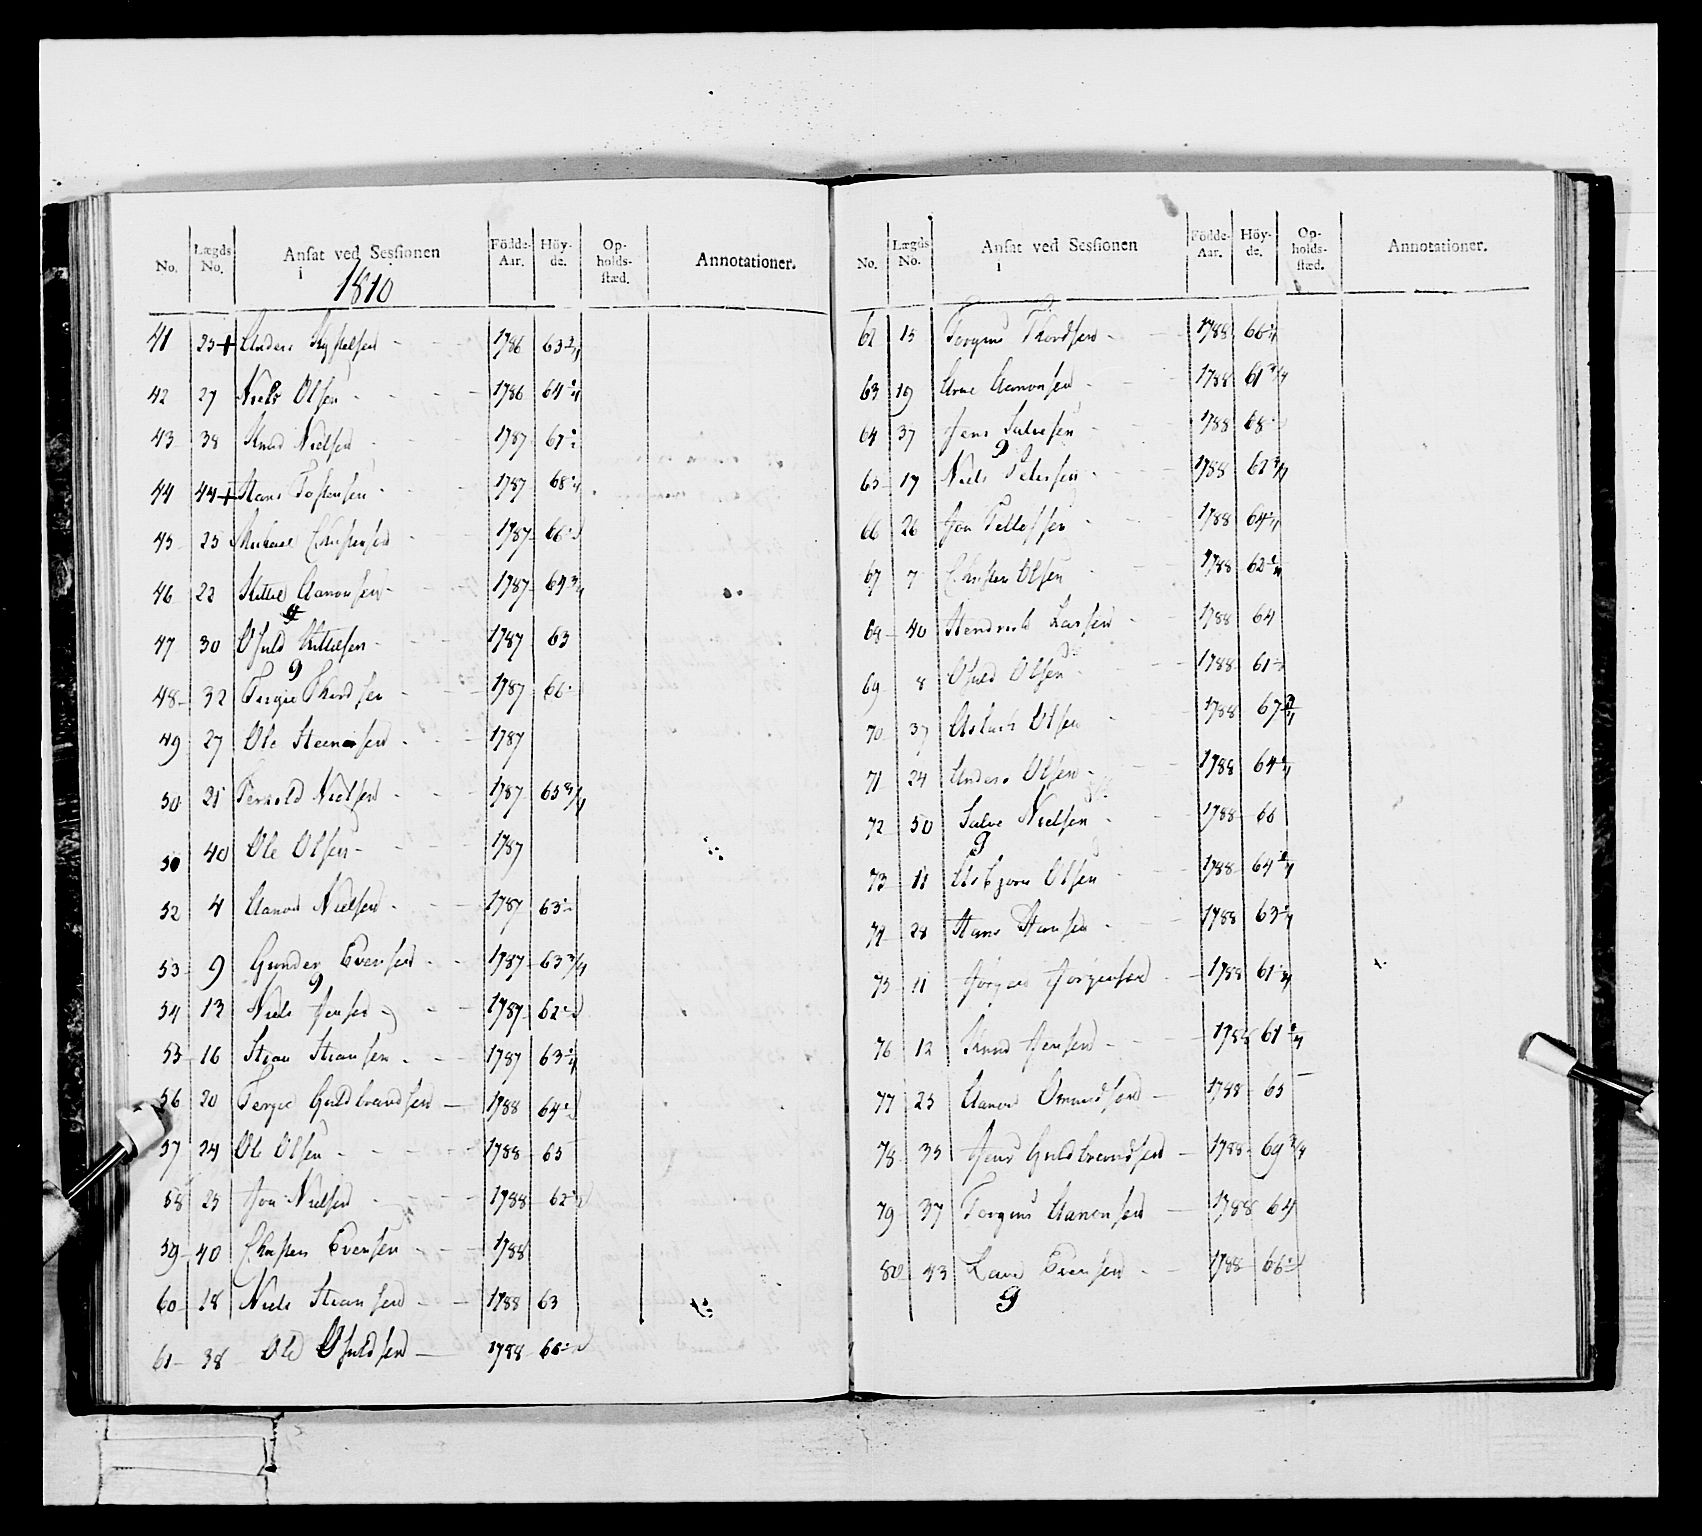 No. Lægds No. Ansat ved Sessionen i 1810 Födde-Aar. Höy-de. Op-holds-stæd. Annotationer.
41 25+ Anders 1786 63
42 27 Niels Olsen 1786 64
43 38 Knud Nielsen 1787 67
44 44+ Hans Tostensen 1787 68
45 25 Michael Christensen 1787 66
46 22 Kittel Aanonsen 1787 64
47 30 Osuld Kittelsen 1787 63
48 32 Tergie Thordsen 1787 66
49 27 Ole Steensen 1787
50 21 Nielsen 1787 65 3/4
50 40 Ole Olsen 1787
52 4 Aanon Nielsen 1787 63
53 9 Gunder Evensen 1787 63 3/4
54 13 Niels Jensen 1787 62
55 16 1787 63
56 20 Tergie Guldbrandsen 1788 64
57 24 Ole Olsen 1788 65
58 25 Jon Nielsen 1788 62
59 40 Christen Evensen 1788
60 18 Niels 1788 63
61 38 Ole Osuldsen 1788 66
No. Lægds No. Ansat ved Sessionen i Födde-Aar. Höy-de. Op-holds-stæd. Annotationer.
62 15 Torgius Thordsen 1788 66
63 19 Arne Aanonsen 1788 61 3/4
64 37 Jens Salvesen 1788 68
65 17 Niels Pedersen 1788 62
66 26 Jon Tellefsen 1788 64
67 7 Christen Olsen 1788 62
68 40 Hendrich Larsen 1788 64
69 8 Osuld Olsen 1788 61
70 37 Aslach Olsen 1788 67
71 24 Anders Olsen 1788 64
72 50 Salve Nielsen 1788 66
73 11 Asbjørn Olsen 1788 64
74 28 Hans Hansen 1788 63
75 11 Jørgen Jørgensen 1788 61
76 12 Knud Jensen 61
77 25 Aanon Omundsen 1788 65
78 35 Jens Guldbrandsen 1788 69 3/4
79 37 Torgius Aanonsen 1788 64
80 43 Evensen 1788 66